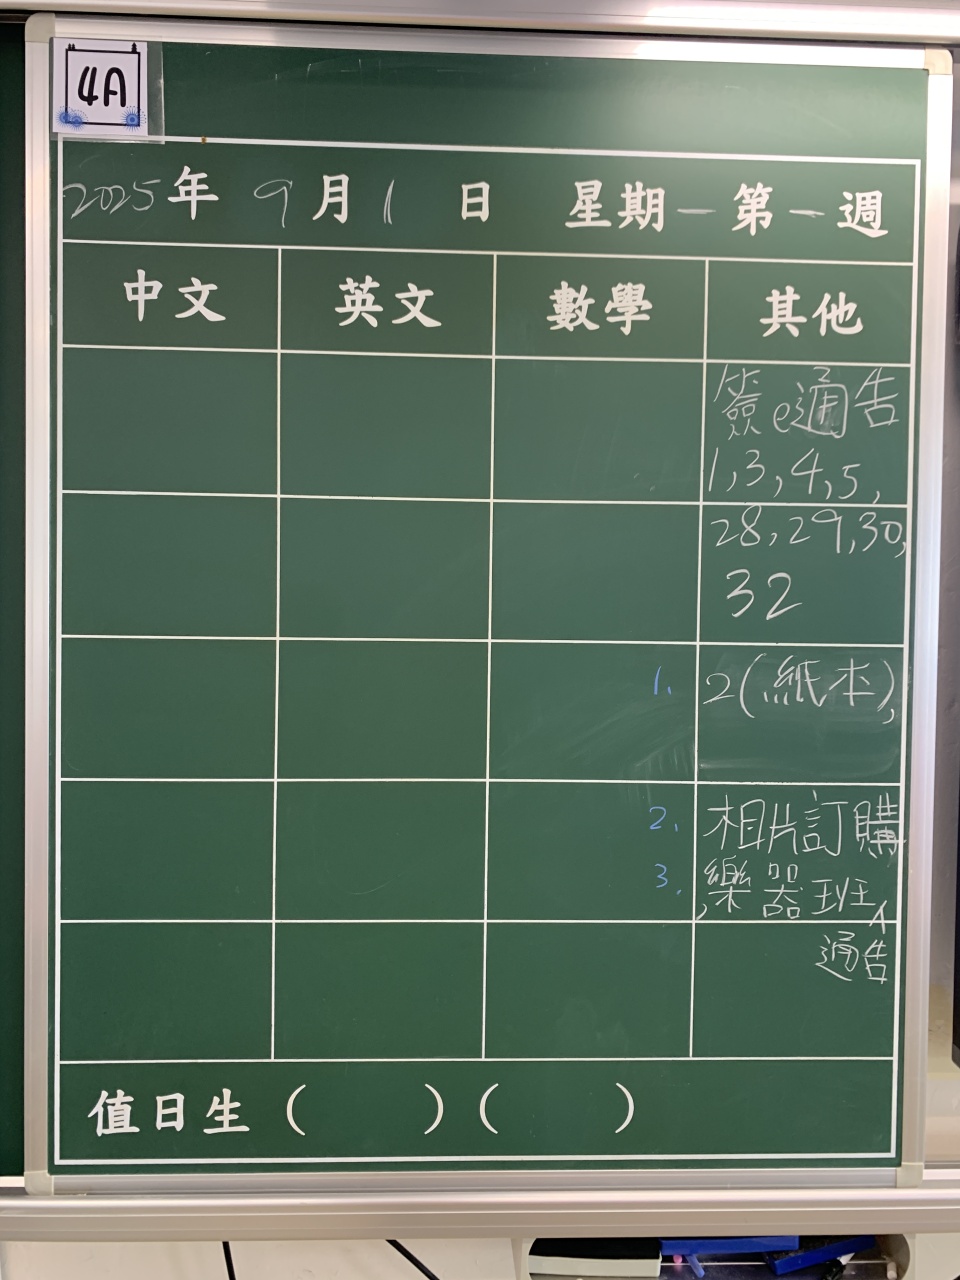 4A
2025年 9月1日 星期一第一週
中文 英文 數學 其他
簽e通告
1,3,4,5,
28,29,30,
32
1. 2(紙本),
2. 相片訂購
3. ,樂器班
通告
值日生( )( )